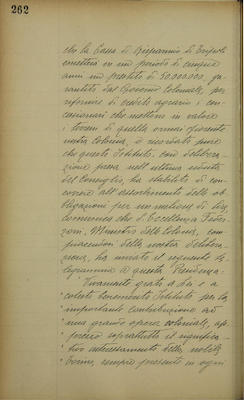 262
che la Cassa di Risparmio di Tripoli
emetterà in un periodo di cinque
anni un prestito di 50.000.000, ga-
rantito dal Governo Coloniale, per
fornire di credito agrario i con-
cessionari che mettono in valore
i terreni di quella ormai fiorente
nostra colonia, è
che questo Istituto, con delibera-
zione presa nell'ultima seduta
del Consiglio, ha stabilito di con-
correre all'assorbimento delle ob-
bligazioni per un milione di lire,
comunica che S. Eccellenza Feder-
zoni, Ministro delle Colonie, com-
piacendosi della nostra delibera-
zione, ha inviato il seguente te-
legramma a questa Presidenza:
"Vivamente grato a Lei e a
"cotesto benemerito Istituto per la
"importante contribuzione ad
"una grande opera coloniale, ap-
"prezzo soprattutto il significa-
"tivo interessamento della nobile
"Torino, sempre presente in ogni